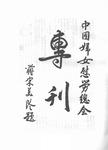 中國婦女慰勞總會
專刊
蔣宋美齡題